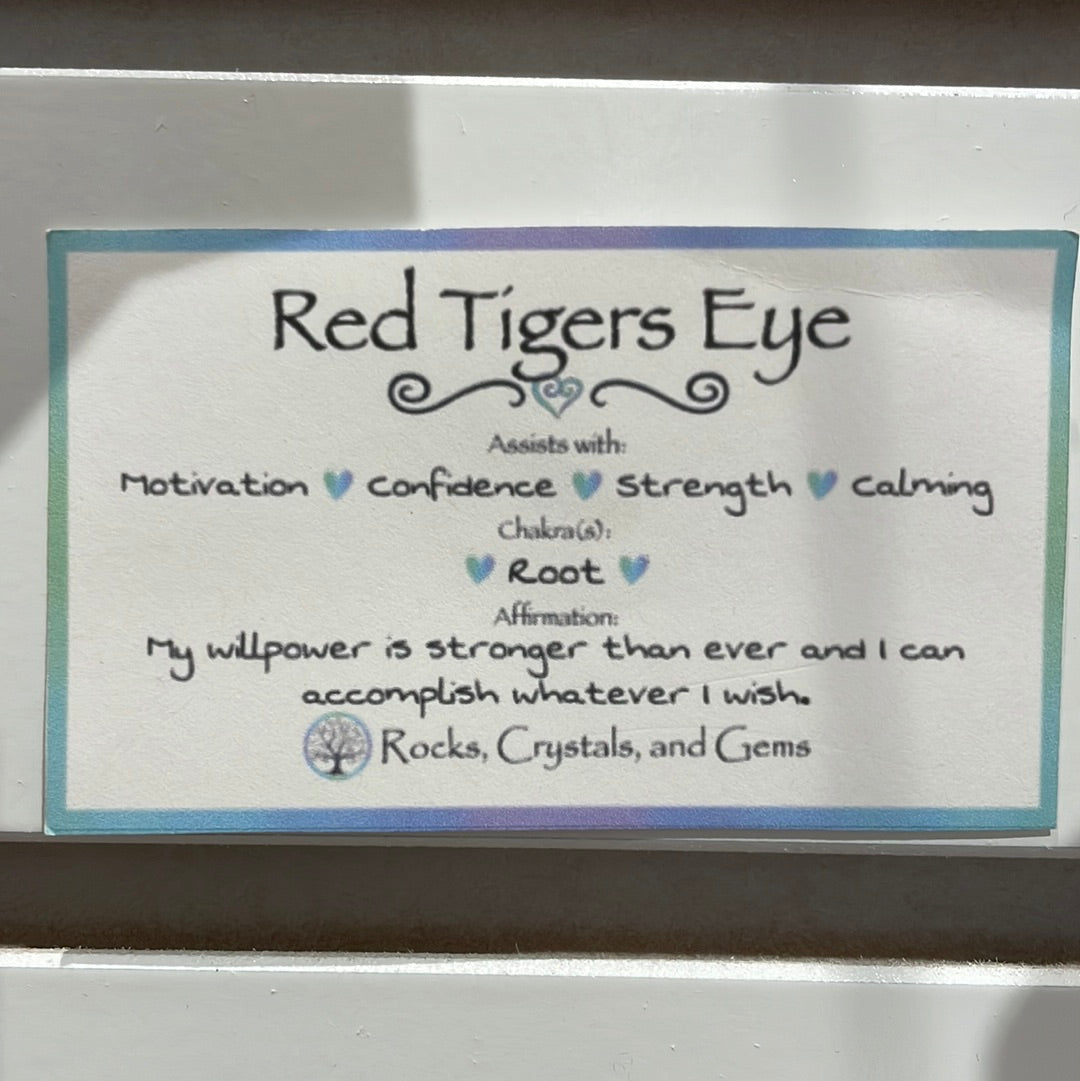 Red Tigers Eye
Assists with:
Motivation Confidence Strength Calming
Chakra(s):
Root
Affirmation:
My willpower is stronger than ever and I can
accomplish whatever I wish.
Rocks, Crystals, and Gems